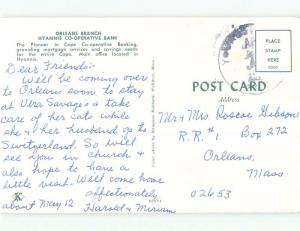 ORLEANS BRANCH
HYANNIS CO-OPERATIVE BANK
The Pioneer in Cape Co-operative Banking,
providing mortgage services and savings needs
for the entire Cape. Main office located in
Hyannis.
Dear Friends:-
Will be coming over
to Orleans soon to stay
at Vera Savage's & take
care of her cats while
she & her husband go to
Switzerland. So will
see you in church &
also hope to have a
little visit. Will come home
about May 12
affectionately,
Harold & Miriam
PLACE
STAMP
HERE
POST CARD
Address
Mr & Mrs. Roscoe Gibson
R.R. #1 Box 272
Orleans,
Mass
02653